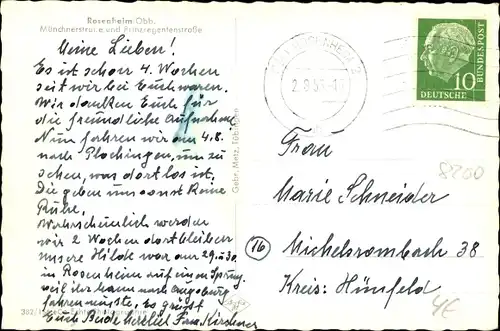 Rosenheim Obb.
Münchnerstraße und Prinzregentenstraße
Meine Lieben!
Es ist schon 4. Wochen
seit wir bei Euch waren.
Wir danken Euch für
die freundliche Aufnahme
Nun fahren wir am 4.8.
nach Plochingen, um zu
sehen, was dort los ist.
Die geben uns sonst keine
Ruhe.
Wahrscheinlich werden
wir 2 Wochen dort bleiben
unsere Hilde war am 29. u 30.
in Rosenheim auf einen Sprung
weil ihr Mann nach Augsburg
fahren mußte. Es grüßt
Euch Beide herzlich Frau Kirchner
Gebr. Metz, Tübingen
10
DEUTSCHE
BUNDESPOST
Frau
Marie Schneider
(16)
Michelsrombach 38
Kreis: Hünfeld
8200
4€